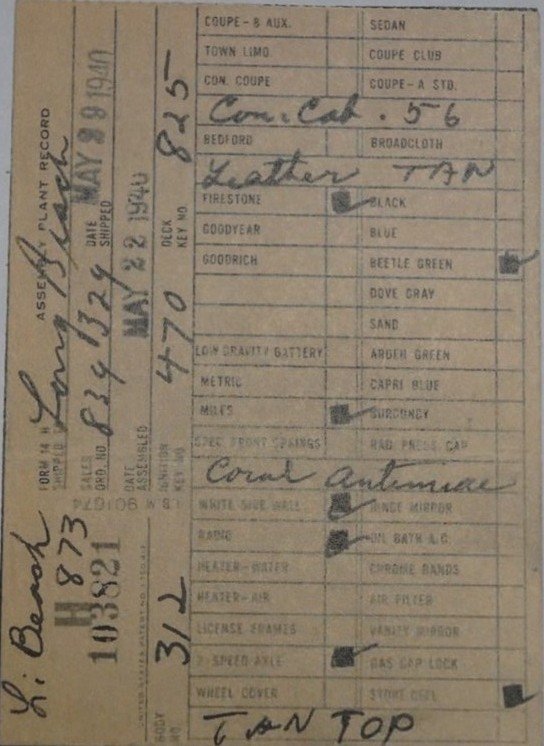 COUPE - B AUX. SEDAN
TOWN LIMO. COUPE CLUB
CON. COUPE COUPE - A STD.
Con. Cab. 56
BEDFORD BROADCLOTH
Leather TAN
FIRESTONE BLACK
GOODYEAR BLUE
GOODRICH BEETLE GREEN
DOVE GRAY
SAND
LOW GRAVITY BATTERY ARDEN GREEN
METRIC CAPRI BLUE
MILES BURGUNDY
SPEC FRONT SPRINGS RAD PRESS CAP
Coral
WHITE SIDE WALL HINGE MIRROR
RADIO OIL BATH A.C.
HEATER-WATER CHROME BANDS
HEATER-AIR AIR FILTER
LICENSE FRAMES VANITY MIRROR
2-SPEED AXLE GAS CAP LOCK
WHEEL COVER
TAN TOP
Beach
H 873
103821
FORM 14
ASSEMBLY PLANT RECORD
SHIPPED Long Beach
SALES ORD. NO. 8391329
DATE SHIPPED MAY 29 1940
DATE ASSEMBLED MAY 22 1940
I.B.M 901674
BODY NO. 312
IGNITION KEY NO. 470
DECK KEY NO. 825